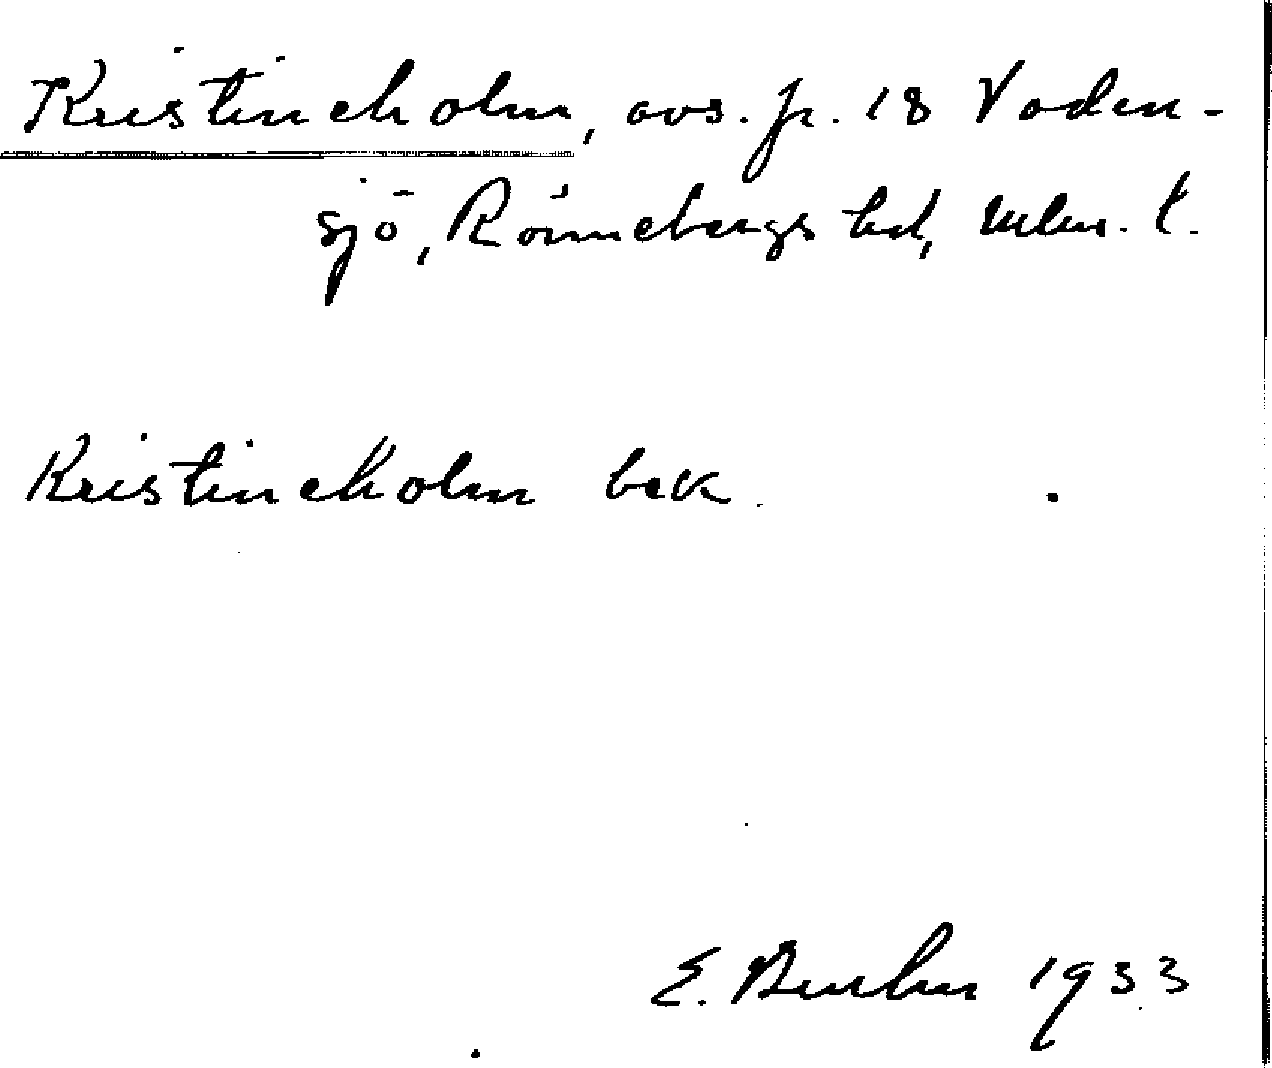 Kristineholm, avs. fr. 18 Vaden-
sjö, Rönnebergs hd, Mlm. l.
Kristineholm bek.
E. 1933